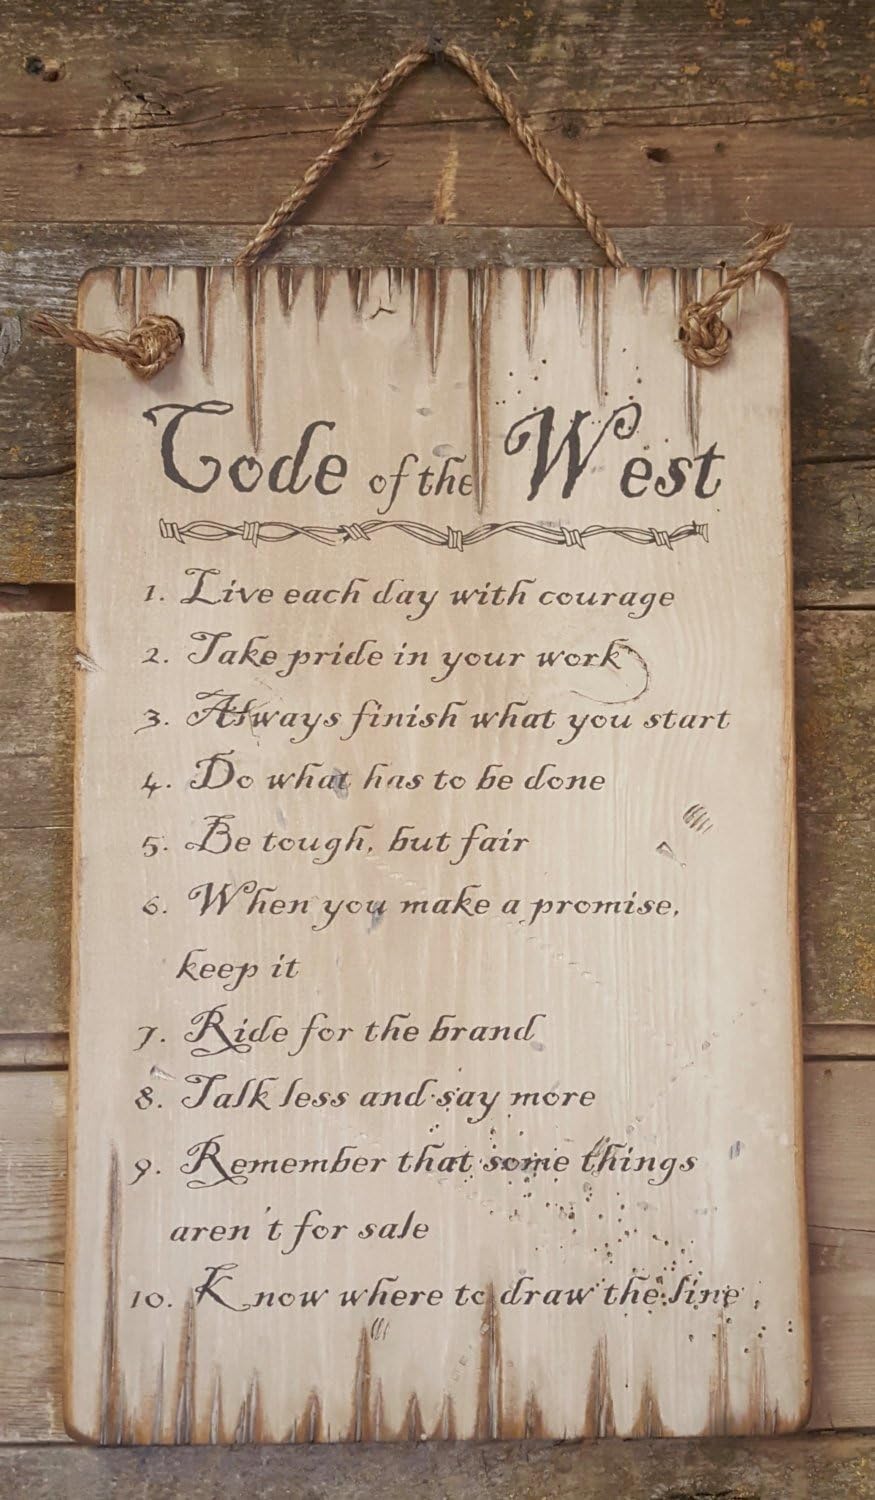 Code of the West
1. Live each day with courage
2. Take pride in your work
3. Always finish what you start
4. Do what has to be done
5. Be tough, but fair
6. When you make a promise,
keep it
7. Ride for the brand
8. Talk less and say more
9. Remember that some things
aren't for sale
10. Know where to draw the line